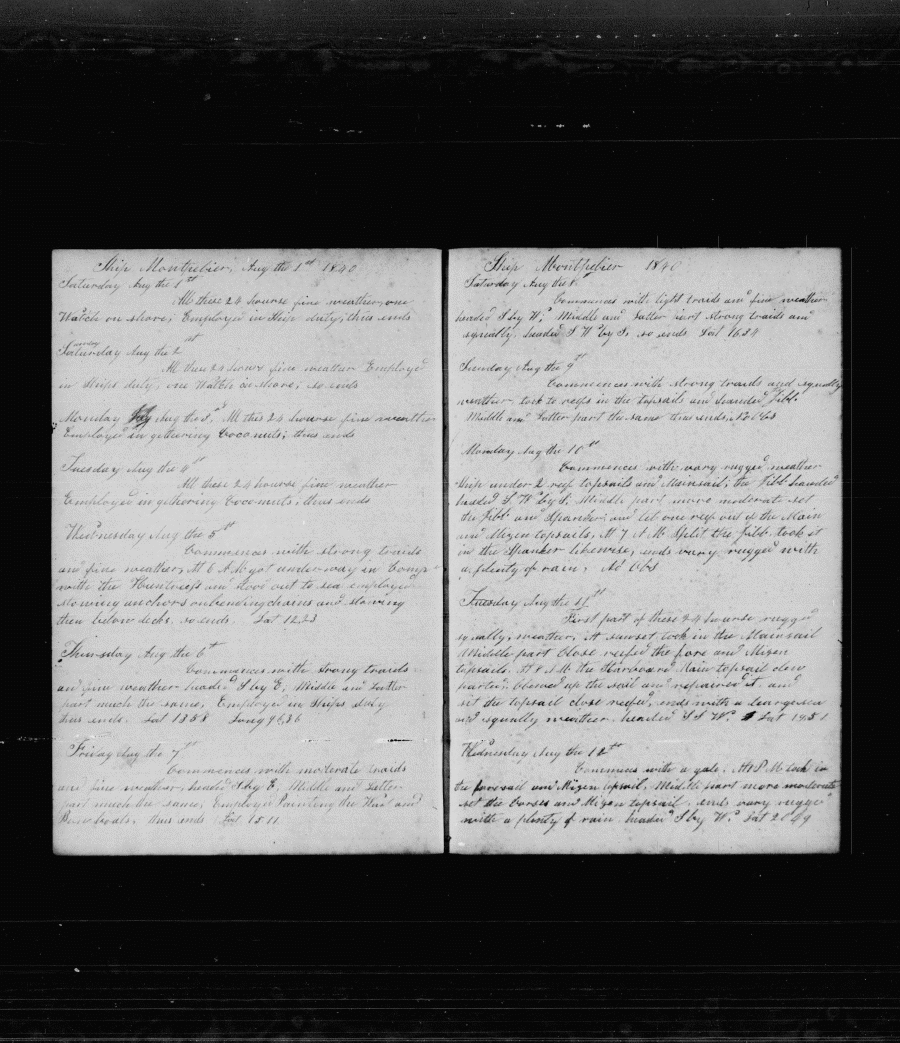 Ship Montpelier, Aug the 1st 1840
Saturday Aug the 1st
All these 24 hourse fine weather, one
Watch on shore, Employed in Ship duty, thus ends
Sunday
Saturday Aug the 2nd
All these 24 hours fine weather Employed
in Ships duty, one Watch on shore, so ends
Monday July Aug the 3d, All these 24 hourse fine weather
Employed in gethering Coconuts; thus ends
Tuesday Aug the 4th
All these 24 hourse fine weather
Employed in gethering Coconuts; thus ends
Wednesday Aug the 5th
Commences with strong traids
and fine weather, At 6 A M got under way in Comp
with the Huntress and stood out to sea employed
stowing anchors onbending chains and stowing
them below decks. so ends. Lat 12,23
Thursday Aug the 6th
Commences with strong traids
and fine weather headed S by E, Middle and Latter
part much the same, Employed in Ships duty
thus ends. Lat 1358 Long 96,86
Friday Aug the 7th
Commences with moderate traids
and fine weather, headed S by E, Middle and Latter
part much the same, Employed Painting the and
boats, thus ends Lat 15 11
Ship Montpelier 1840
Saturday Aug the 8th
Commences with light traids and fine weather
headed S by W, Middle and Latter part strong traids and
squally. headed S W by S, so ends Lat 16.34
Sunday Aug the 9th
Commences with strong traids and squally
weather, took to reefs in the topsails and handed Jibb
Middle and Latter part the same thus ends, No Obs
Monday Aug the 10th
Commences with vary rugged weather
Ship under 2 reef topsails and Mainsail; the Jibb handed
headed S W by S, Middle part more moderate set
the Jibb and Spanker; and let one reef out of the Main
and Mizen topsails, At 7 A M Split the Jibb. took it
in the Spanker likewise, ends vary rugged with
a plenty of rain, No Obs
Tuesday Aug the 11th
First part of these 24 hourse rugged
squally, weather, At sunset took in the Mainsail
Middle part Close reefed the fore and Mizen
topsails. At 8 A M the Starboard Main topsail clew
parted, Clewed up the sail and repaired it. and
set the topsail close reefed, ends with a large sea
and squally weather. headed S S W. Lat 19,51
Wednesday Aug the 12th
Commens with a gale. At P M took in
the foresail and Mizen topsail, Middle part more moderate
set the Corses and Mizen topsail. ends vary rugged
with a plenty of rain. headed S by W. Lat 20 49